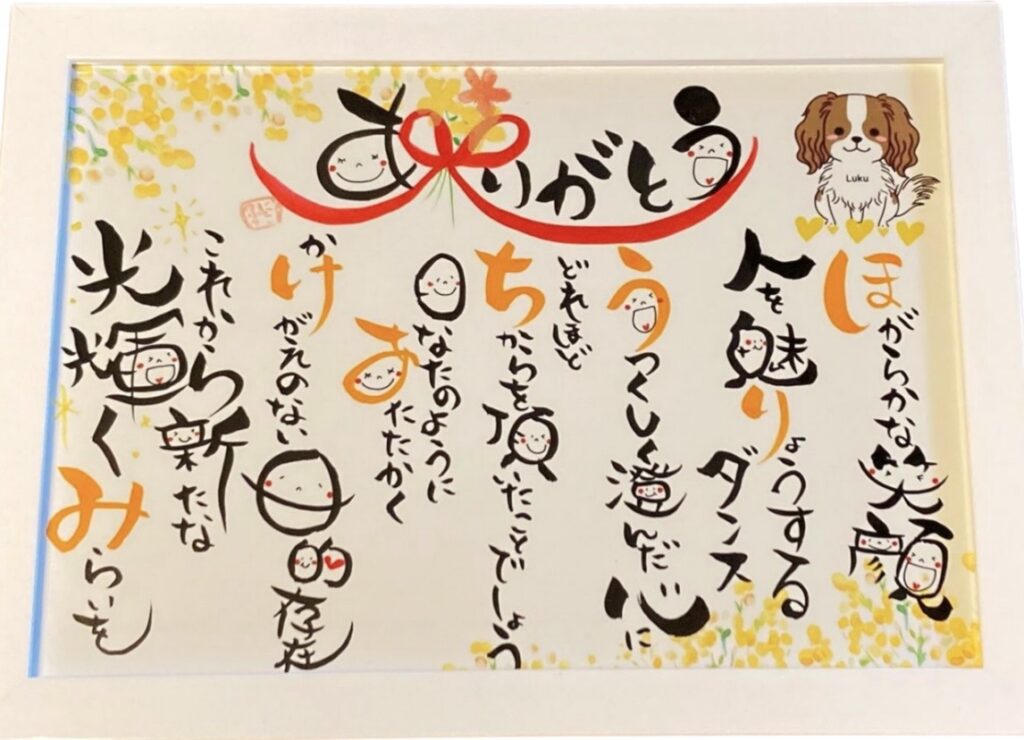 ありがとう
Luku
ほがらかな笑顔
人を魅りょうする
ダンス
うつくしく澄んだ心に
どれほど
ちからを頂いたことでしょう
日なたのように
あたたかく
かけがえのない日的存在
これから新たな
光輝くみらいを